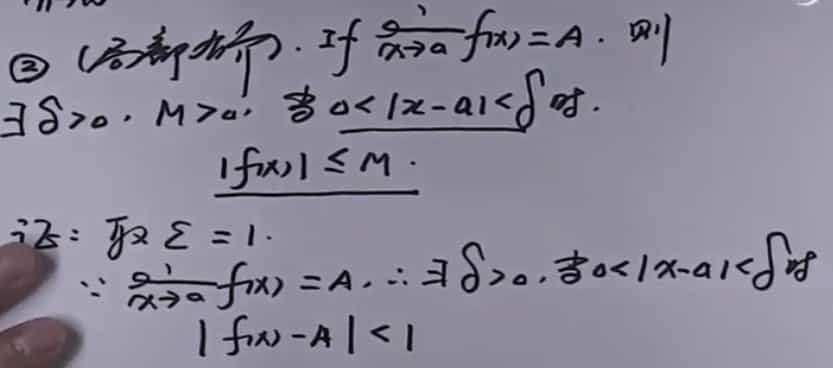 ② (局部有界). If lim x→a f(x) = A. 则
∃ δ>0. M>0. 当 0<|x-a|<δ时.
|f(x)| ≤ M.
证: 取 ε = 1.
∵ lim x→a f(x) = A. ∴ ∃ δ>0. 当0<|x-a|<δ时
|f(x)-A| < 1